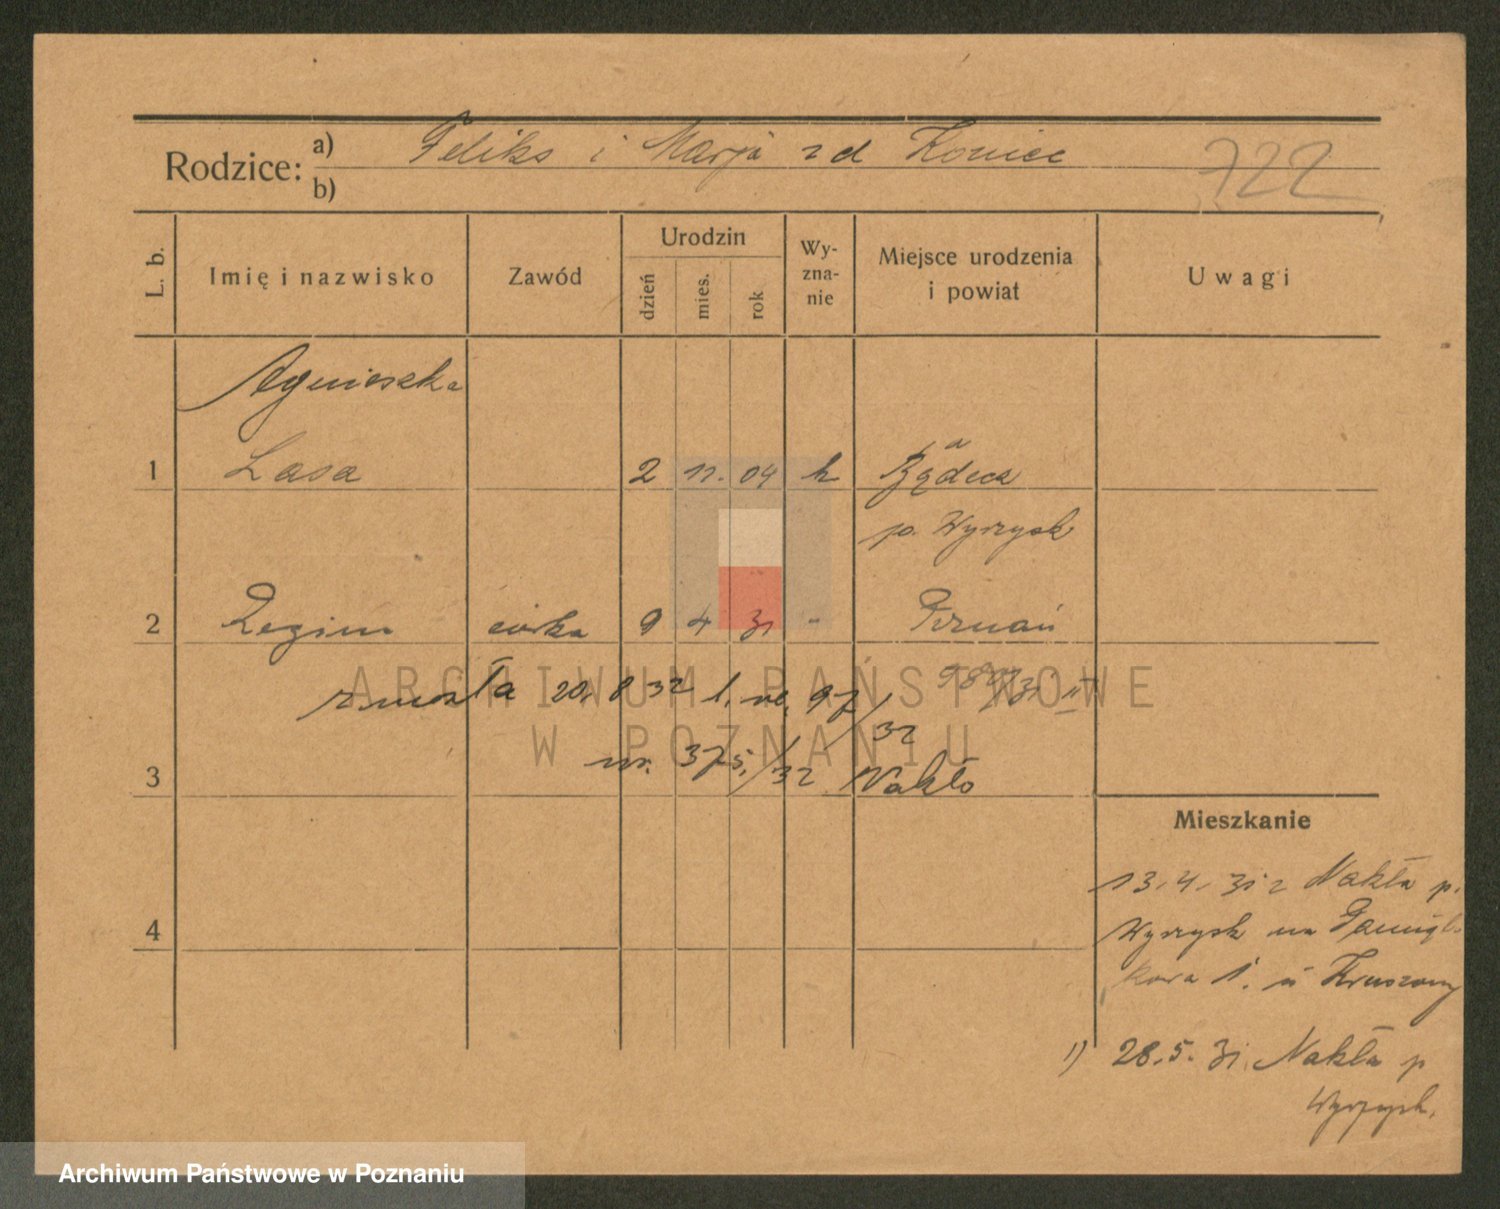 Rodzice: a) Feliks i Marja z d Koniec
b)
722
L. b.
Imię i nazwisko
Zawód
Urodzin
dzień
mies.
rok
Wy-
zna-
nie
Miejsce urodzenia
i powiat
Uwagi
Agnieszka
1 Lasa 2 11. 04 k Bądecz
p. Wyrzysk
2 Regina córka 9 4 31 " Poznań
zmarła 20. 8 32 l. 97/32
nr. 375/32 Nakło
3
Mieszkanie
13.4.31 z Nakła p.
Wyrzysk na
1.
4
1) 28.5.31. Nakła p
Wyrzysk.
ARCHIWUM PAŃSTWOWE
W POZNANIU
Archiwum Państwowe w Poznaniu